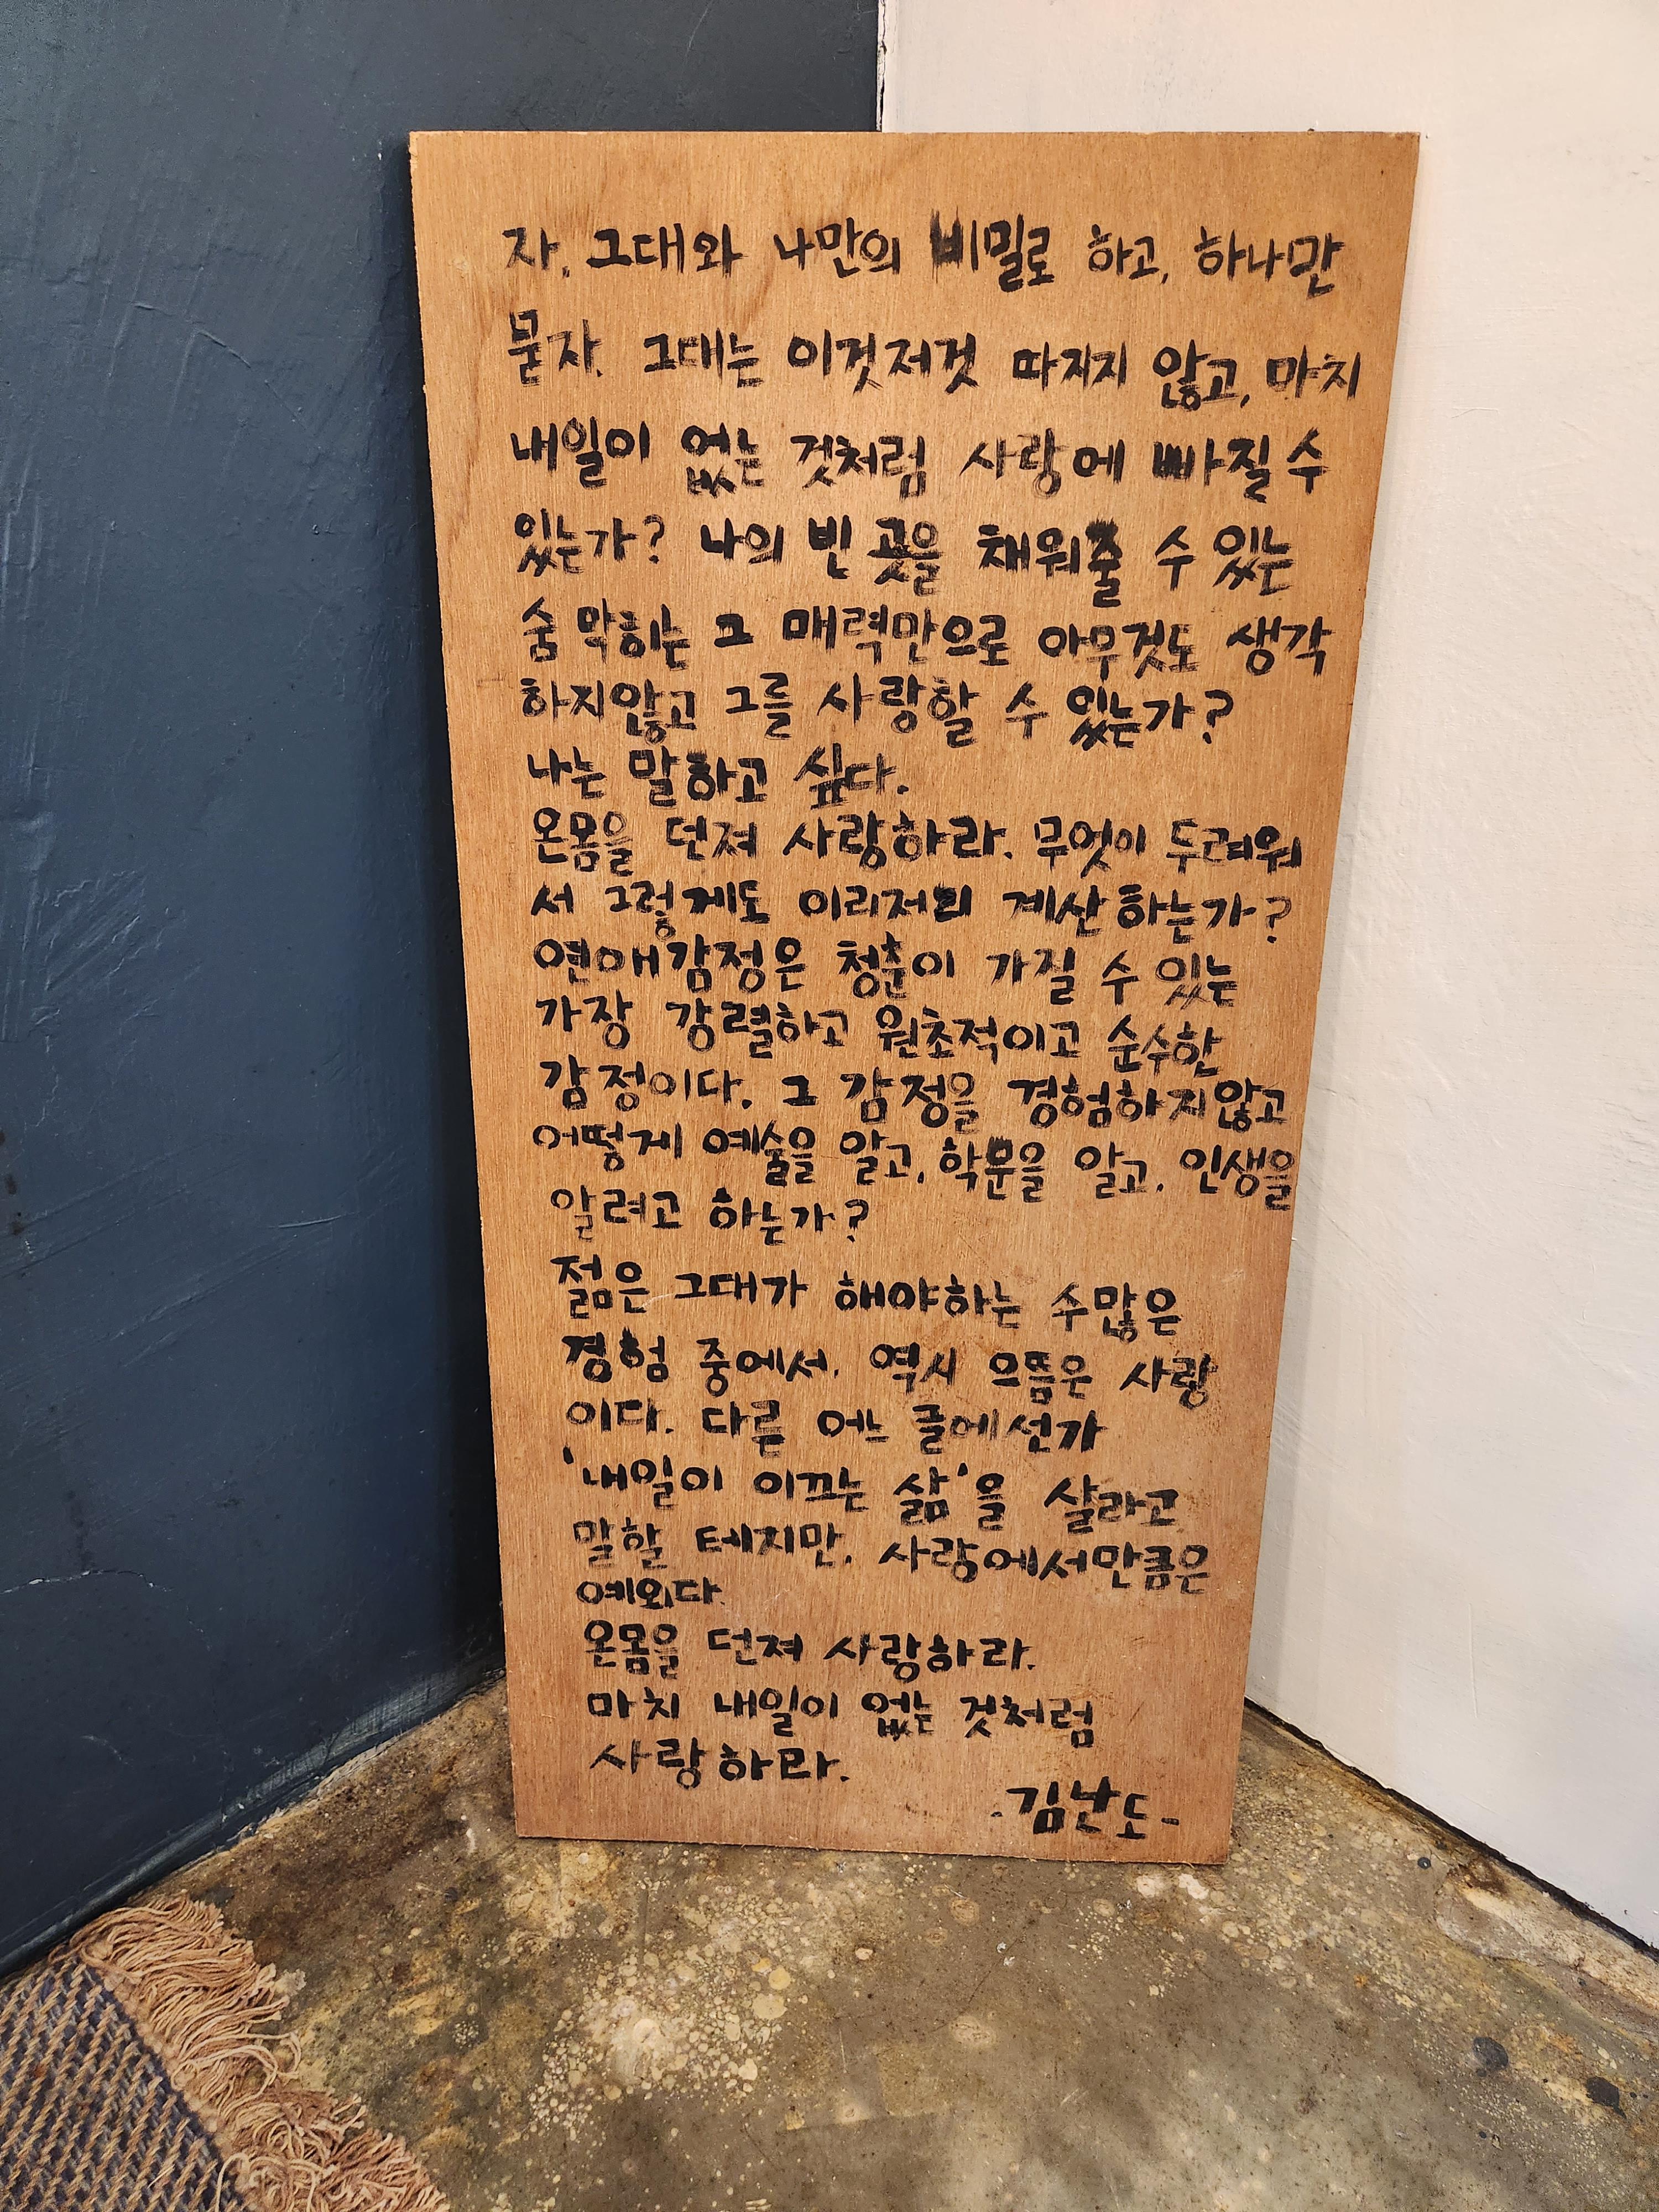 자, 그대와 나만의 비밀로 하고, 하나만
묻자. 그대는 이것저것 따지지 않고, 마치
내일이 없는 것처럼 사랑에 빠질 수
있는가? 나의 빈 곳을 채워줄 수 있는
숨 막히는 그 매력만으로 아무것도 생각
하지않고 그를 사랑할 수 있는가?
나는 말하고 싶다.
온몸을 던져 사랑하라. 무엇이 두려워
서 그렇게도 이리저리 계산하는가?
연애감정은 청춘이 가질 수 있는
가장 강렬하고 원초적이고 순수한
감정이다. 그 감정을 경험하지않고
어떻게 예술을 알고, 학문을 알고, 인생을
알려고 하는가?
젊은 그대가 해야하는 수많은
경험 중에서, 역시 으뜸은 사랑
이다. 다른 어느 글에선가
'내일이 이끄는 삶'을 살라고
말할 테지만, 사랑에서만큼은
예외다.
온몸을 던져 사랑하라.
마치 내일이 없는 것처럼
사랑하라.
-김난도-